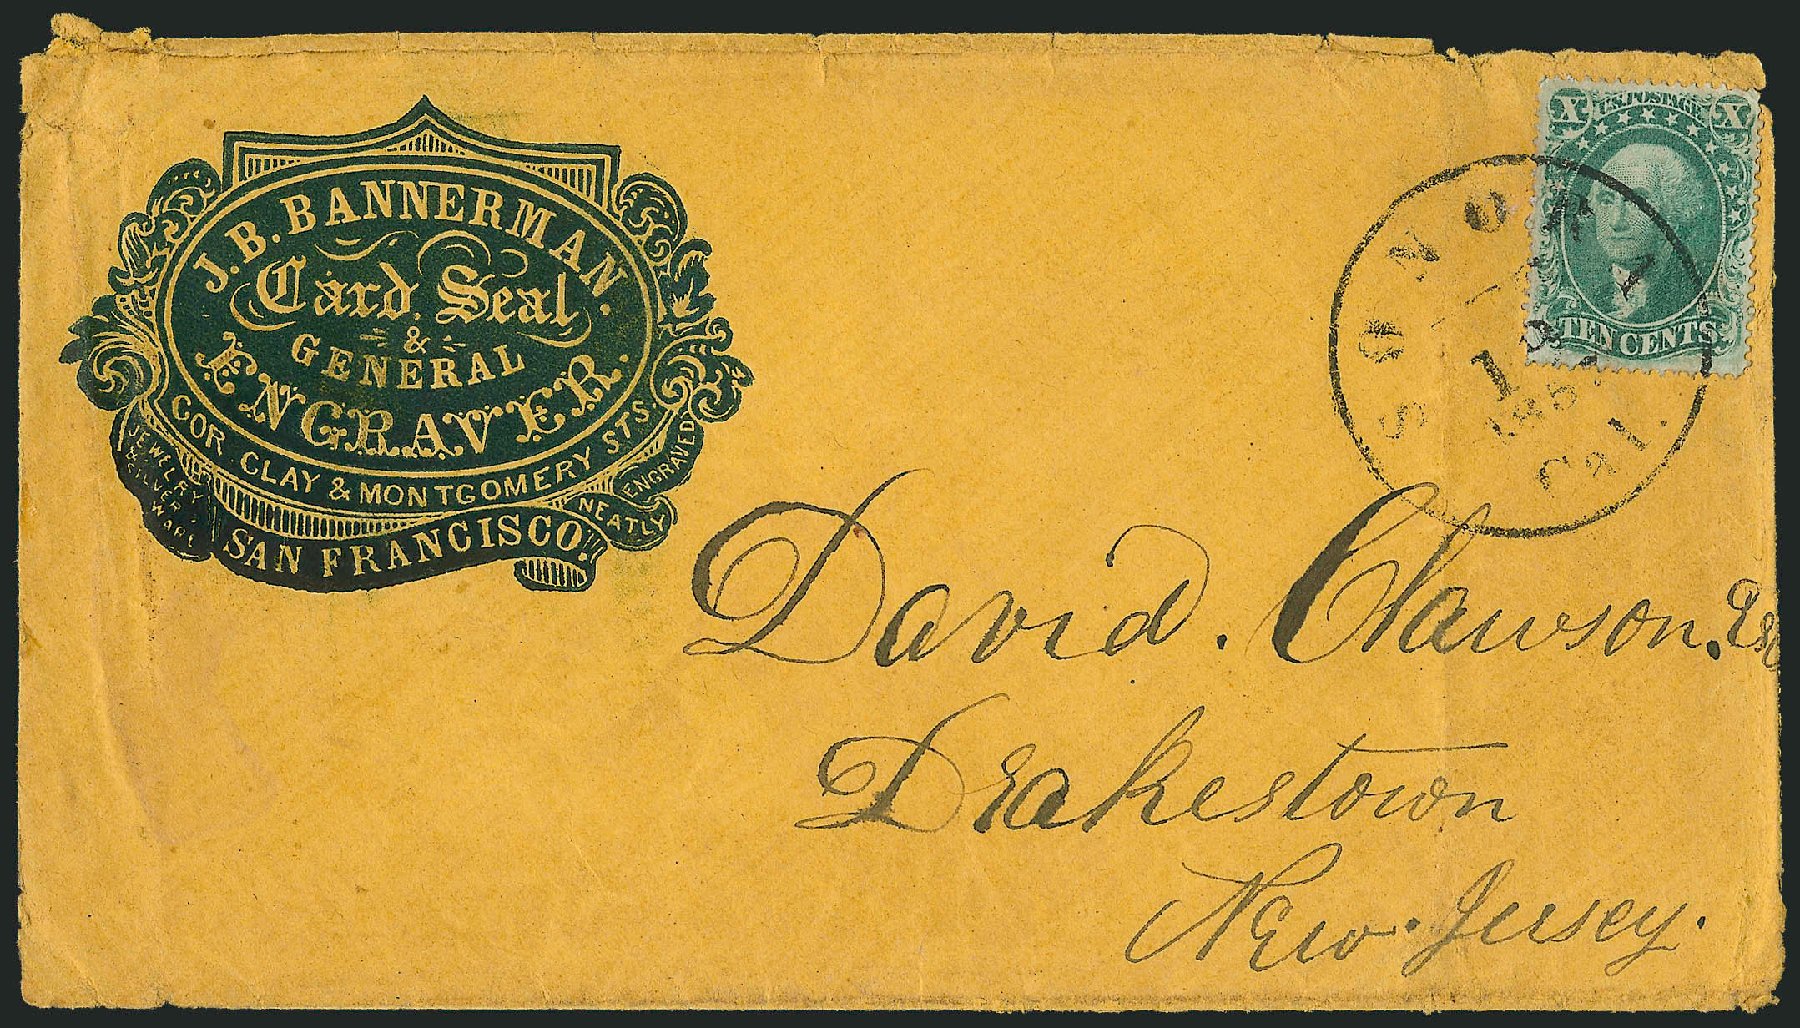 J. B. BANNERMAN.
Card. Seal
&
GENERAL
ENGRAVER.
COR. CLAY & MONTGOMERY STS.
JEWELRY
& SILVER
WARE
NEATLY
ENGRAVED
SAN FRANCISCO.
X U.S. POSTAGE X
TEN CENTS
SONORA
1
185
Cal.
David. Clawson, Esq
Drakestown
New. Jersey.